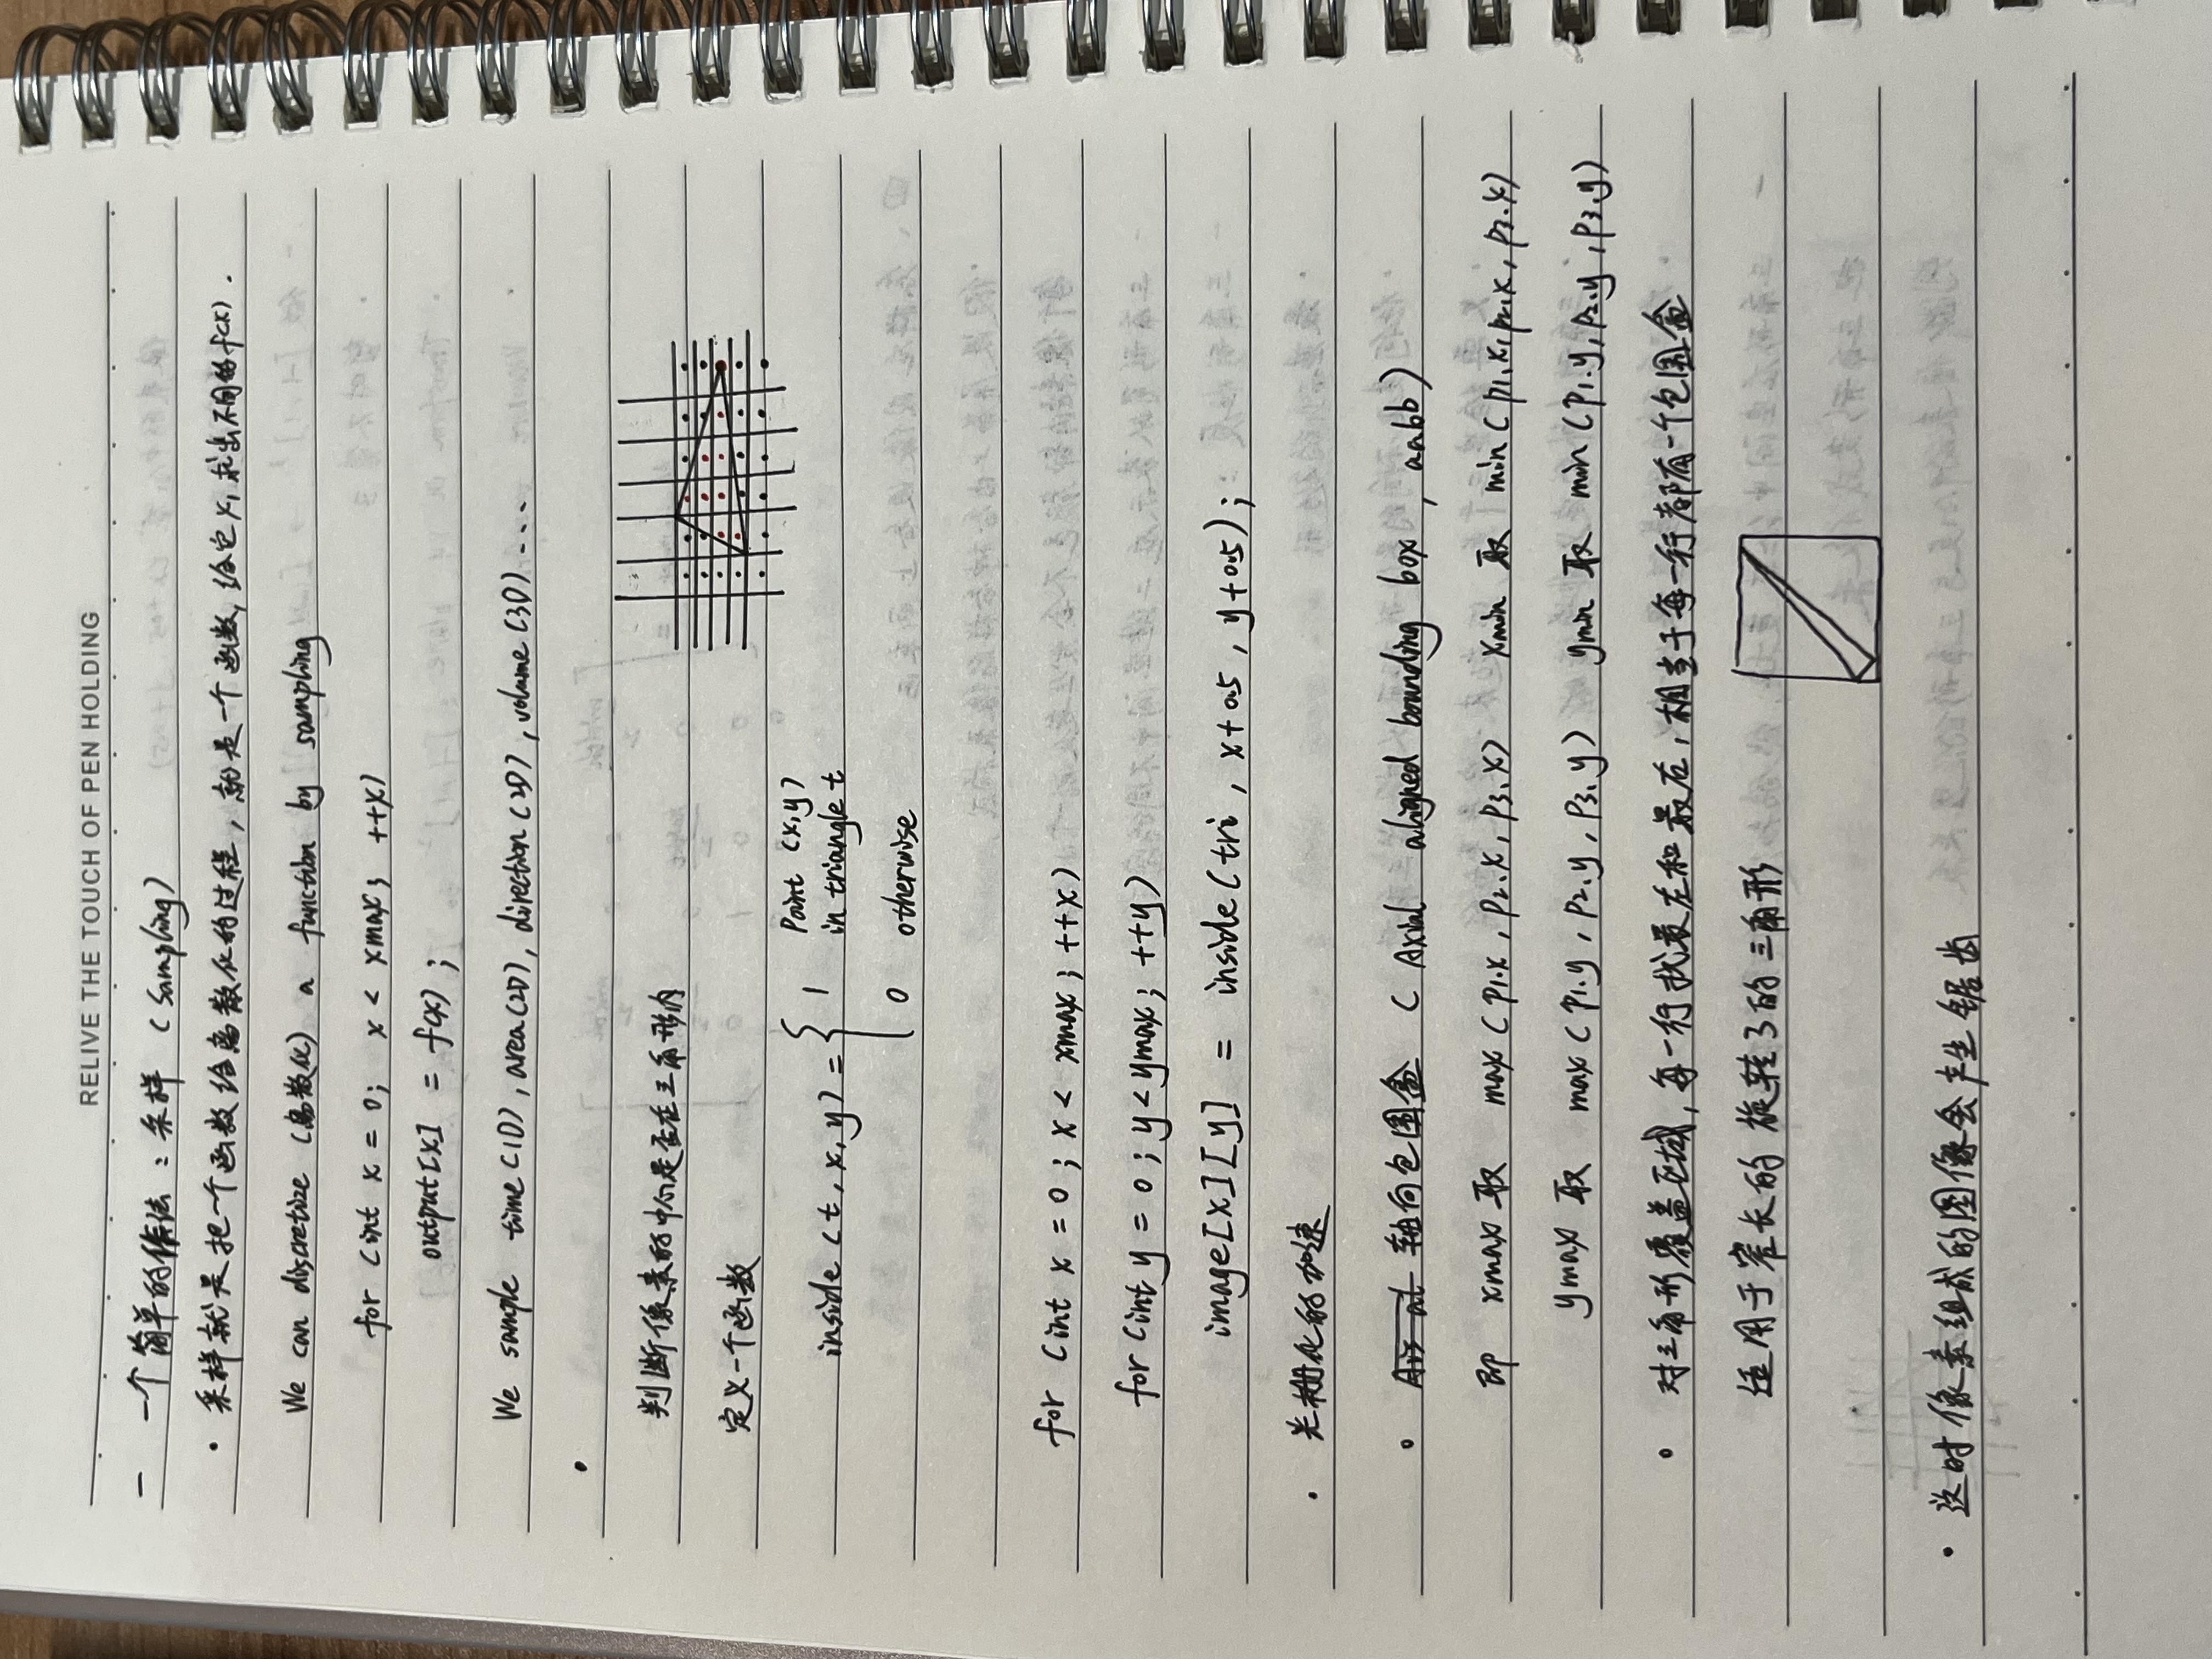 RELIVE THE TOUCH OF PEN HOLDING
- 一个简单的作法：采样 (sampling)
· 采样就是把一个函数给离散化的过程，就是一个函数，给它x，求出不同的f(x).
We can discretize (离散化) a function by sampling
for (int x = 0; x < xmax; ++x)
output[x] = f(x);
We sample time (1D), area(2D), direction(2D), volume(3D)...
·
判断像素的中心是否在三角形内
定义一个函数
inside(t, x, y) = { 1 Point (x,y) in triangle t
0 otherwise
for (int x = 0; x < xmax; ++x)
for (int y = 0; y < ymax; ++y)
image[x][y] = inside(tri, x+0.5, y+0.5);
· 光栅化的加速
· 轴向包围盒 (Axial aligned bounding box, aabb)
即 xmax 取 max(p1.x, p2.x, p3.x) xmin 取 min(p1.x, p2.x, p3.x)
ymax 取 max(p1.y, p2.y, p3.y) ymin 取 min(p1.y, p2.y, p3.y)
· 对三角形覆盖区域，每一行找最左和最右，相当于每一行都有一个包围盒
适用于窄长的旋转了的三角形
· 这时像素组成的图像会产生锯齿